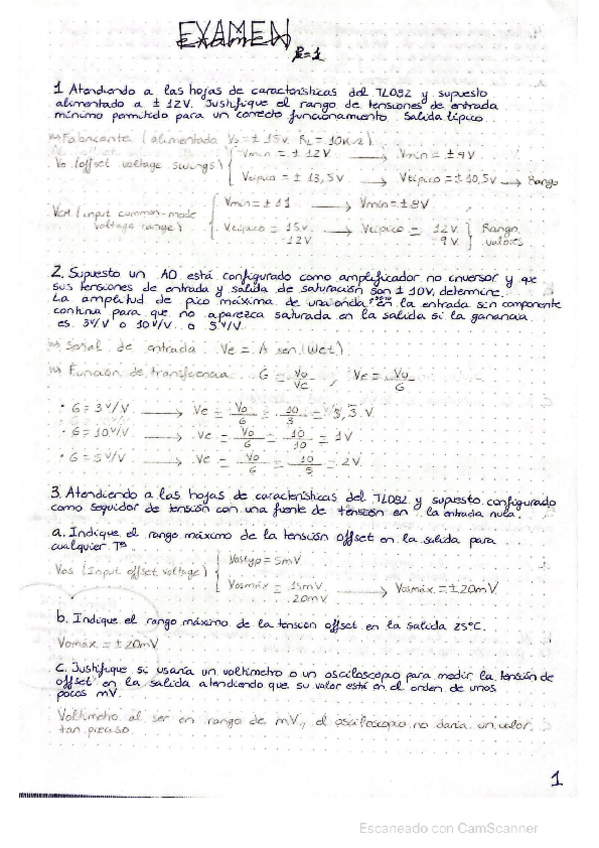 EXAMEN
P=1
1 Atendiendo a las hojas de características del TL082 y supuesto
alimentado a ± 12V. Justifique el rango de tensiones de entrada
mínimo permitido para un correcto funcionamiento. Salida típico.
Fabricante (alimentada Vs = ± 15V. RL = 10KΩ)
Vo (offset voltage swings) { Vmin = ± 12V → Vmin = ± 9V
Vtípico = ± 13,5V → Vtípico = ± 10,5V → Rango
VCM (input common-mode voltage range) { Vmin = ± 11 → Vmin = ± 8V
Vtípico = 15V → Vtípico = 12V ] Rango
-12V -9V valores
2. Supuesto un AO está configurado como amplificador no inversor y que
sus tensiones de entrada y salida de saturación son ± 10V, determine.
La amplitud de pico máxima de una onda en la entrada sin componente
continua para que no aparezca saturada en la salida si la ganancia
es 3V/V o 10V/V o 5V/V
Señal de entrada Ve = A sen (Wet)
Función de transferencia G = Vo/Ve , Ve = Vo/G
• G = 3V/V → Ve = Vo/G = 10/3 = 3,3̄ V
• G = 10V/V → Ve = Vo/G = 10/10 = 1V
• G = 5V/V → Ve = Vo/G = 10/5 = 2V
3. Atendiendo a las hojas de características del TL082 y supuesto configurado
como seguidor de tensión con una fuente de tensión en la entrada nula.
a. Indique el rango máximo de la tensión offset en la salida para
cualquier Tª
Vos (Input offset voltage) { Vostyp = 5mV
Vosmáx = 15mV
20mV → Vosmáx = ± 20mV
b. Indique el rango máximo de la tensión offset en la salida 25ºC.
Vomáx = ± 20mV
C. Justifique si usaría un voltímetro o un osciloscopio para medir la tensión de
offset en la salida atendiendo que su valor está en el orden de unos
pocos mV.
Voltímetro al ser en rango de mV, el osciloscopio no daría un valor
tan preciso
1
Escaneado con CamScanner